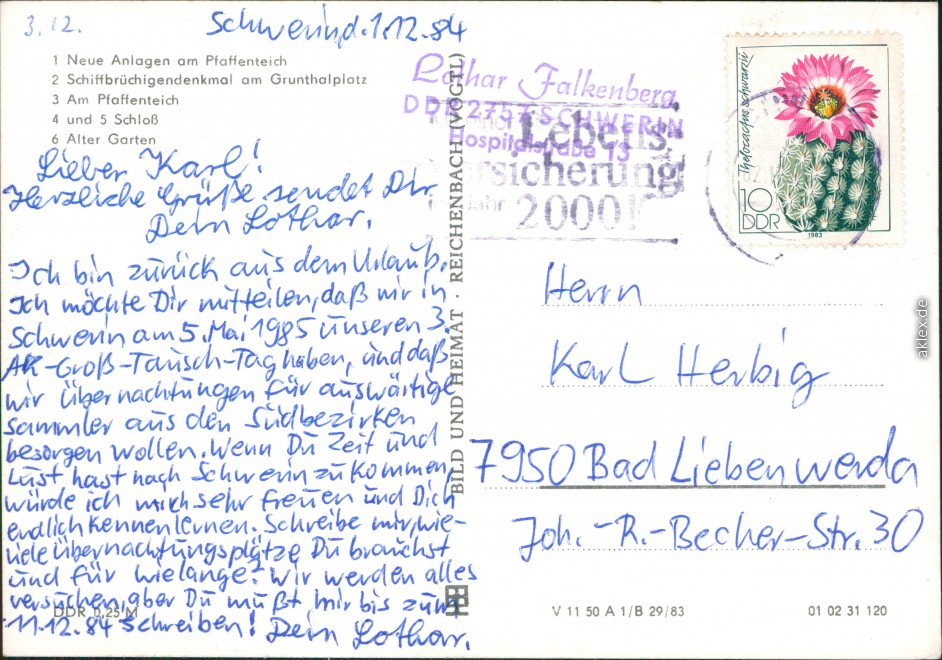 3.12.
Schwerin, d. 1.12.84
1 Neue Anlagen am Pfaffenteich
2 Schiffbrüchigendenkmal am Grunthalplatz
3 Am Pfaffenteich
4 und 5 Schloß
6 Alter Garten
Lieber Karl!
Herzliche Grüße sendet Dir
Dein Lothar.
Ich bin zurück aus dem Urlaub.
Ich möchte Dir mitteilen, daß wir in
Schwerin am 5. Mai 1985 unseren 3.
AK-Groß-Tausch-Tag haben, und daß
wir Übernachtungen für auswärtige
Sammler aus den Südbezirken
besorgen wollen. Wenn Du Zeit und
Lust hast nach Schwerin zu kommen,
würde ich mich sehr freuen und Dich
endlich kennenlernen. Schreibe mir, wie-
viele Übernachtungsplätze Du brauchst
und für wielange? Wir werden alles
versuchen, aber Du mußt mir bis zum
11.12.84 schreiben! Dein Lothar.
DDR 0,25 M
BILD UND HEIMAT · REICHENBACH (VOGTL)
Lothar Falkenberg
DDR 2757 SCHWERIN
Hospitalstraße 13
Lebens-
versicherung
jahr 2000!
Thelocactus schwarzii
10
DDR
1983
Herrn
Karl Herbig
7950 Bad Liebenwerda
Joh.-R.-Becher-Str. 30
V 11 50 A 1/B 29/83
01 02 31 120
aklex.de